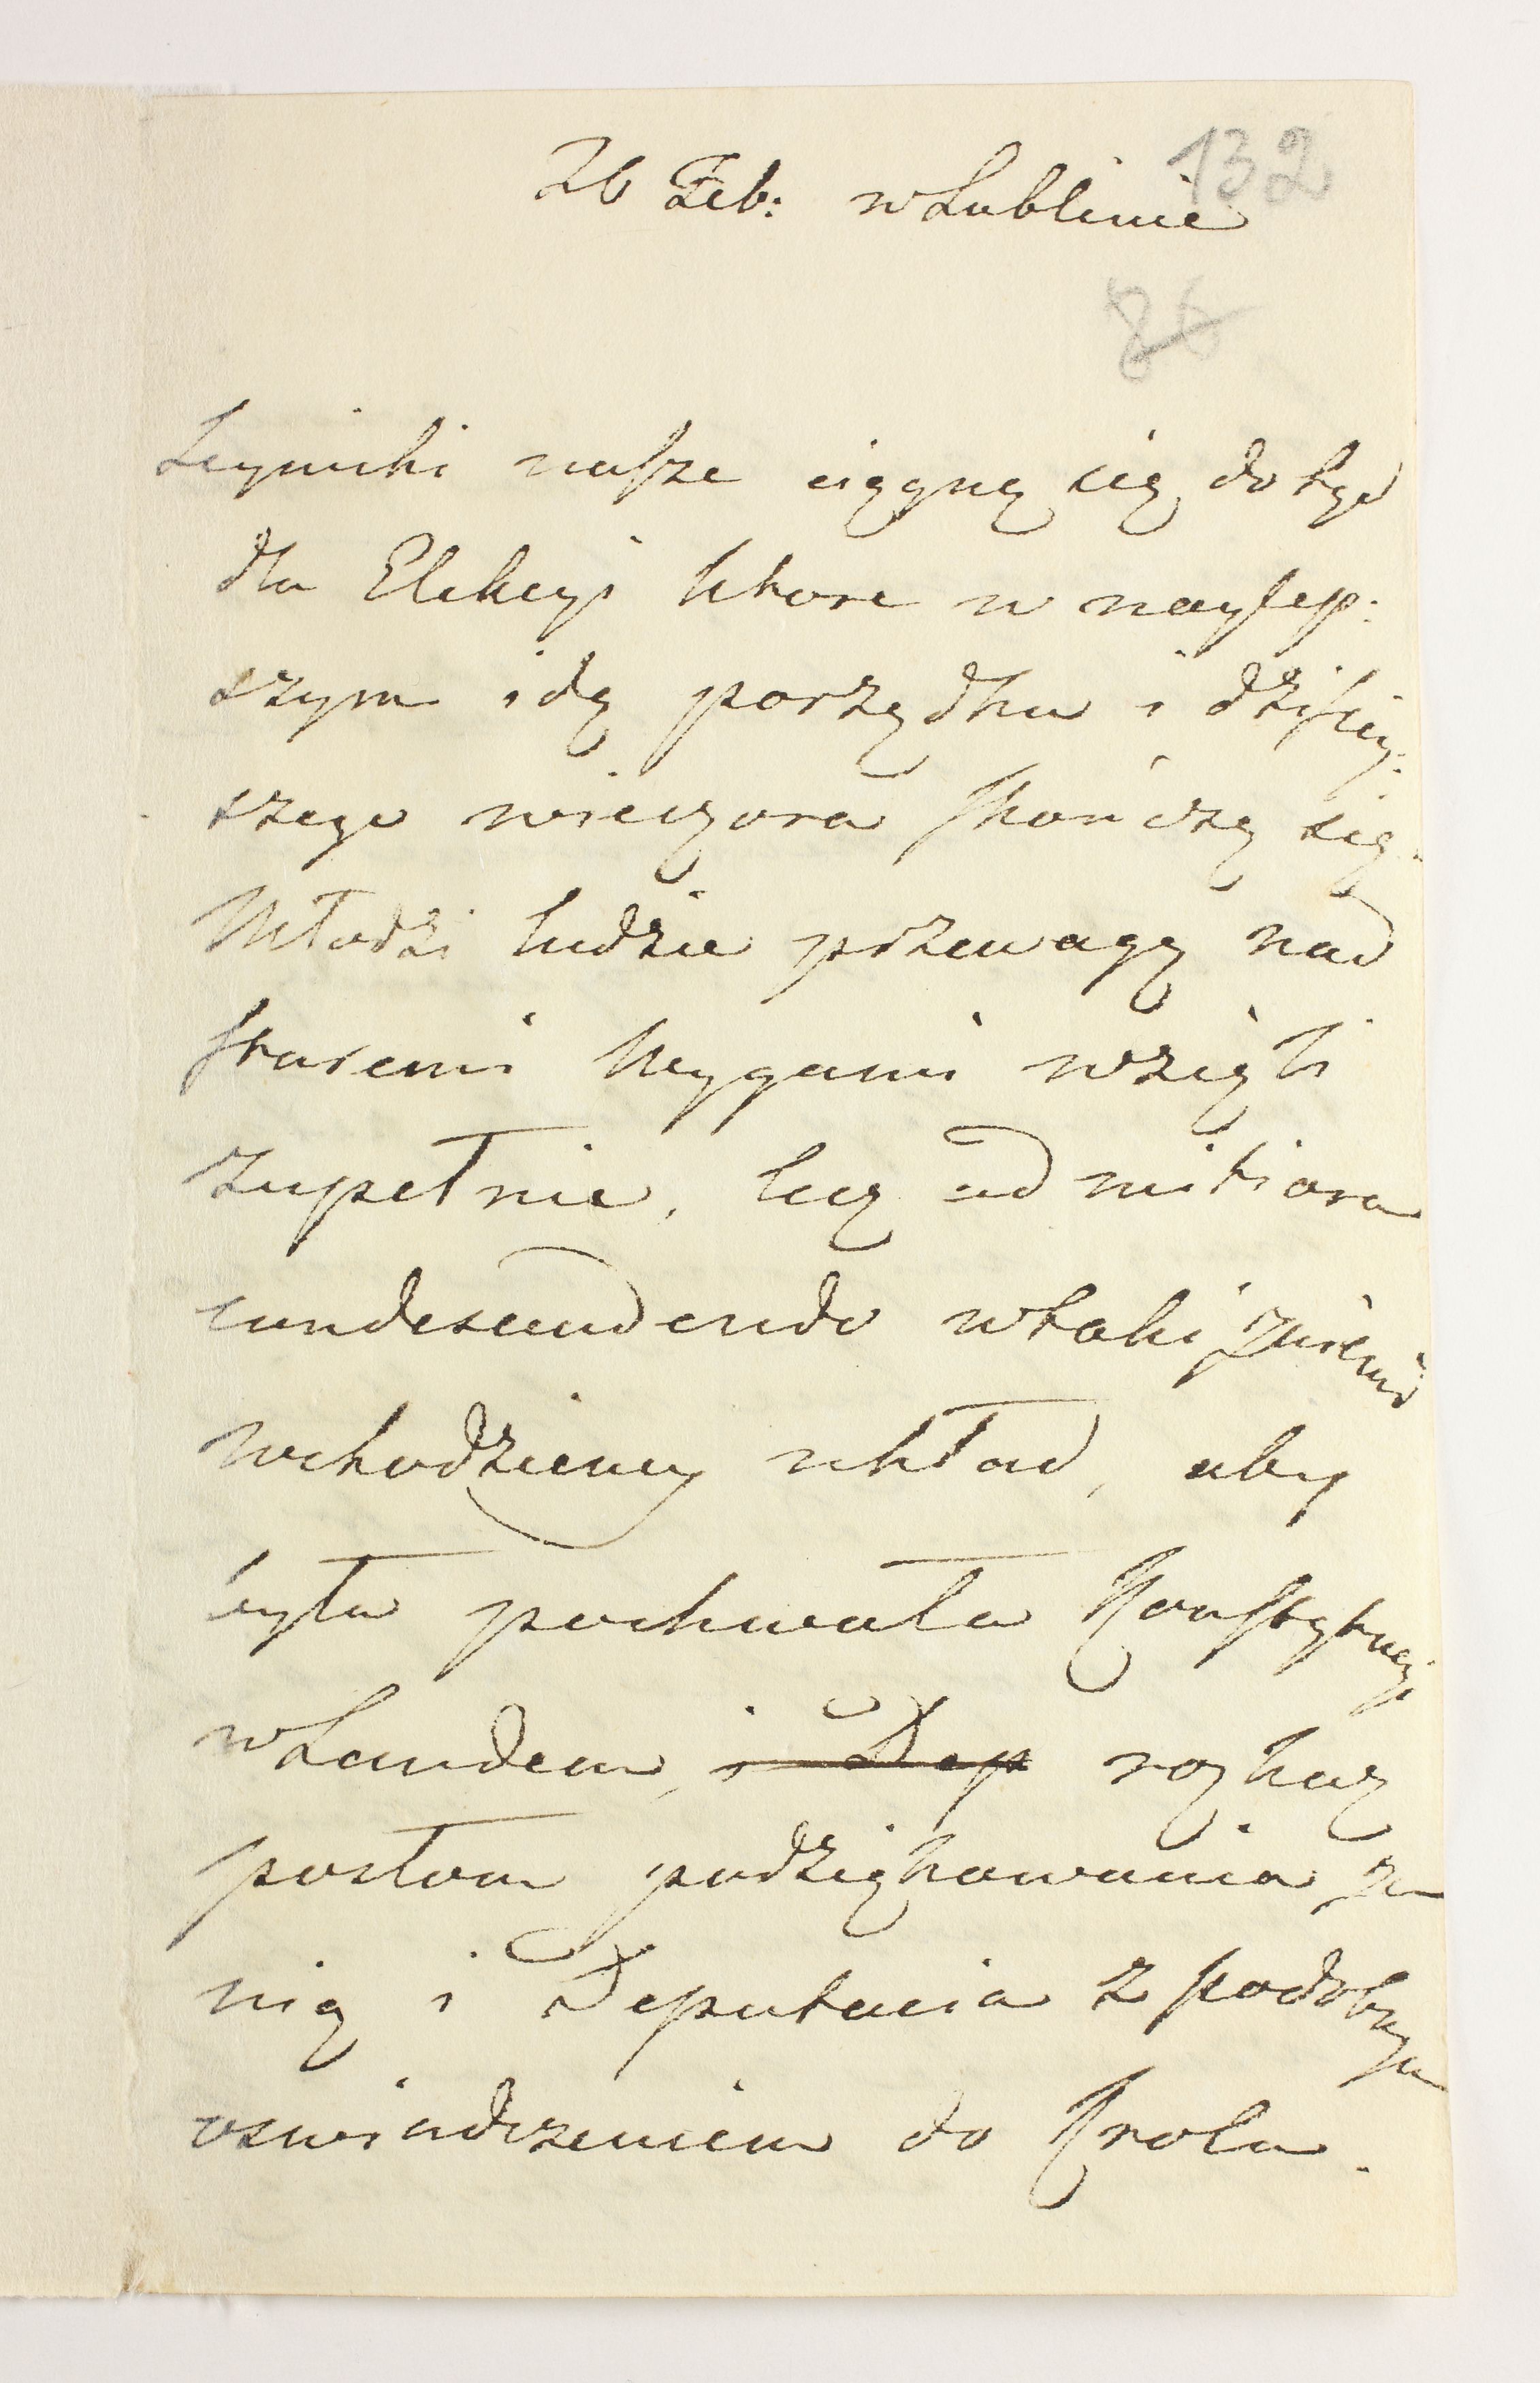 132
26 Feb: w Lublinie
86
Seymiki nasze ciągną się dotąd
dla Elekcyi ktore w naylep:
szym idą porządku i dzisiey:
szego wieczora skończą się.
Młodzi ludzie przewagę nad
staremi wygami wzięli
zupełnie, lecz ad mitiora
condescendendo w taki z niemi
wchodziemy układ, aby
była pochwała Konstytucyi
w Laudem, i Dep rozkaz
posłom podziękowania za
nią i Deputacia z podobnym
oswiadczeniem do Krola.